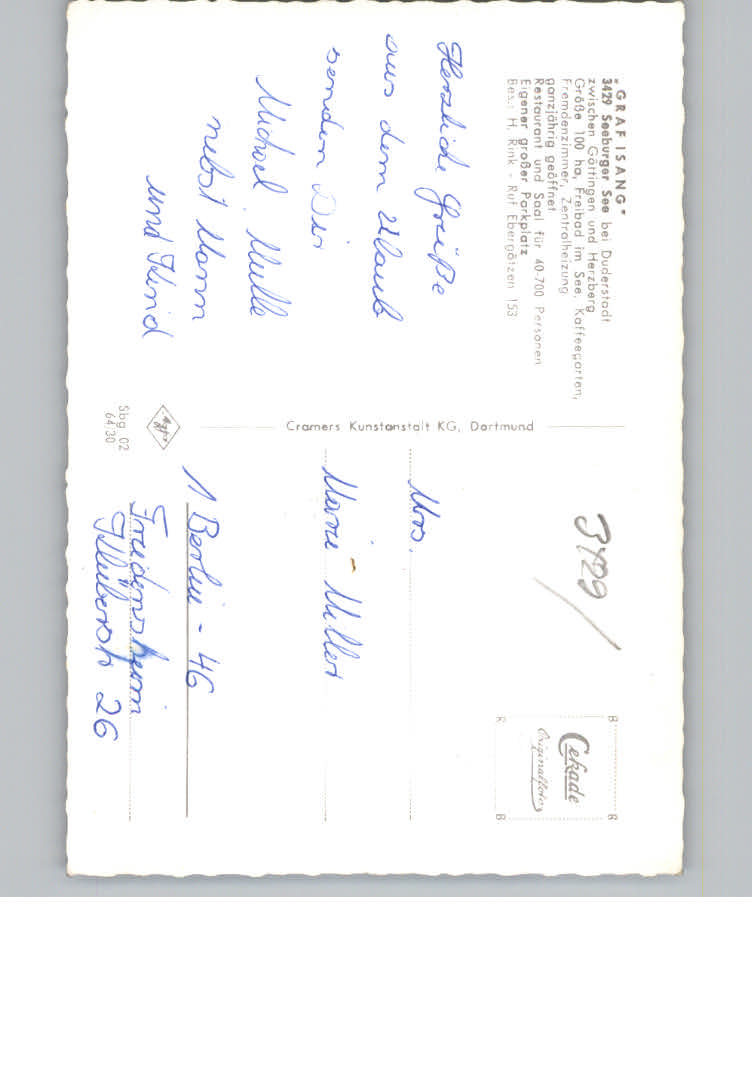 "GRAF ISANG"
3429 Seeburger See bei Duderstadt
zwischen Göttingen und Herzberg
Größe 100 ha, Freibad im See, Kaffeegarten,
Fremdenzimmer, Zentralheizung
ganzjährig geöffnet
Restaurant und Saal für 40-700 Personen
Eigener großer Parkplatz
Bes.: H. Rink - Ruf Ebergötzen 153
Herzliche Grüße
aus dem Urlaub
senden Dir
Michael, Mulle
nebst Mann
und Kind
Cramers Kunstanstalt KG, Dortmund
Agfa
Sbg 02
64/30
3429/
Cekade
Originalfoto
Mrs.
Marie - Miller
1 Berlin - 46
26